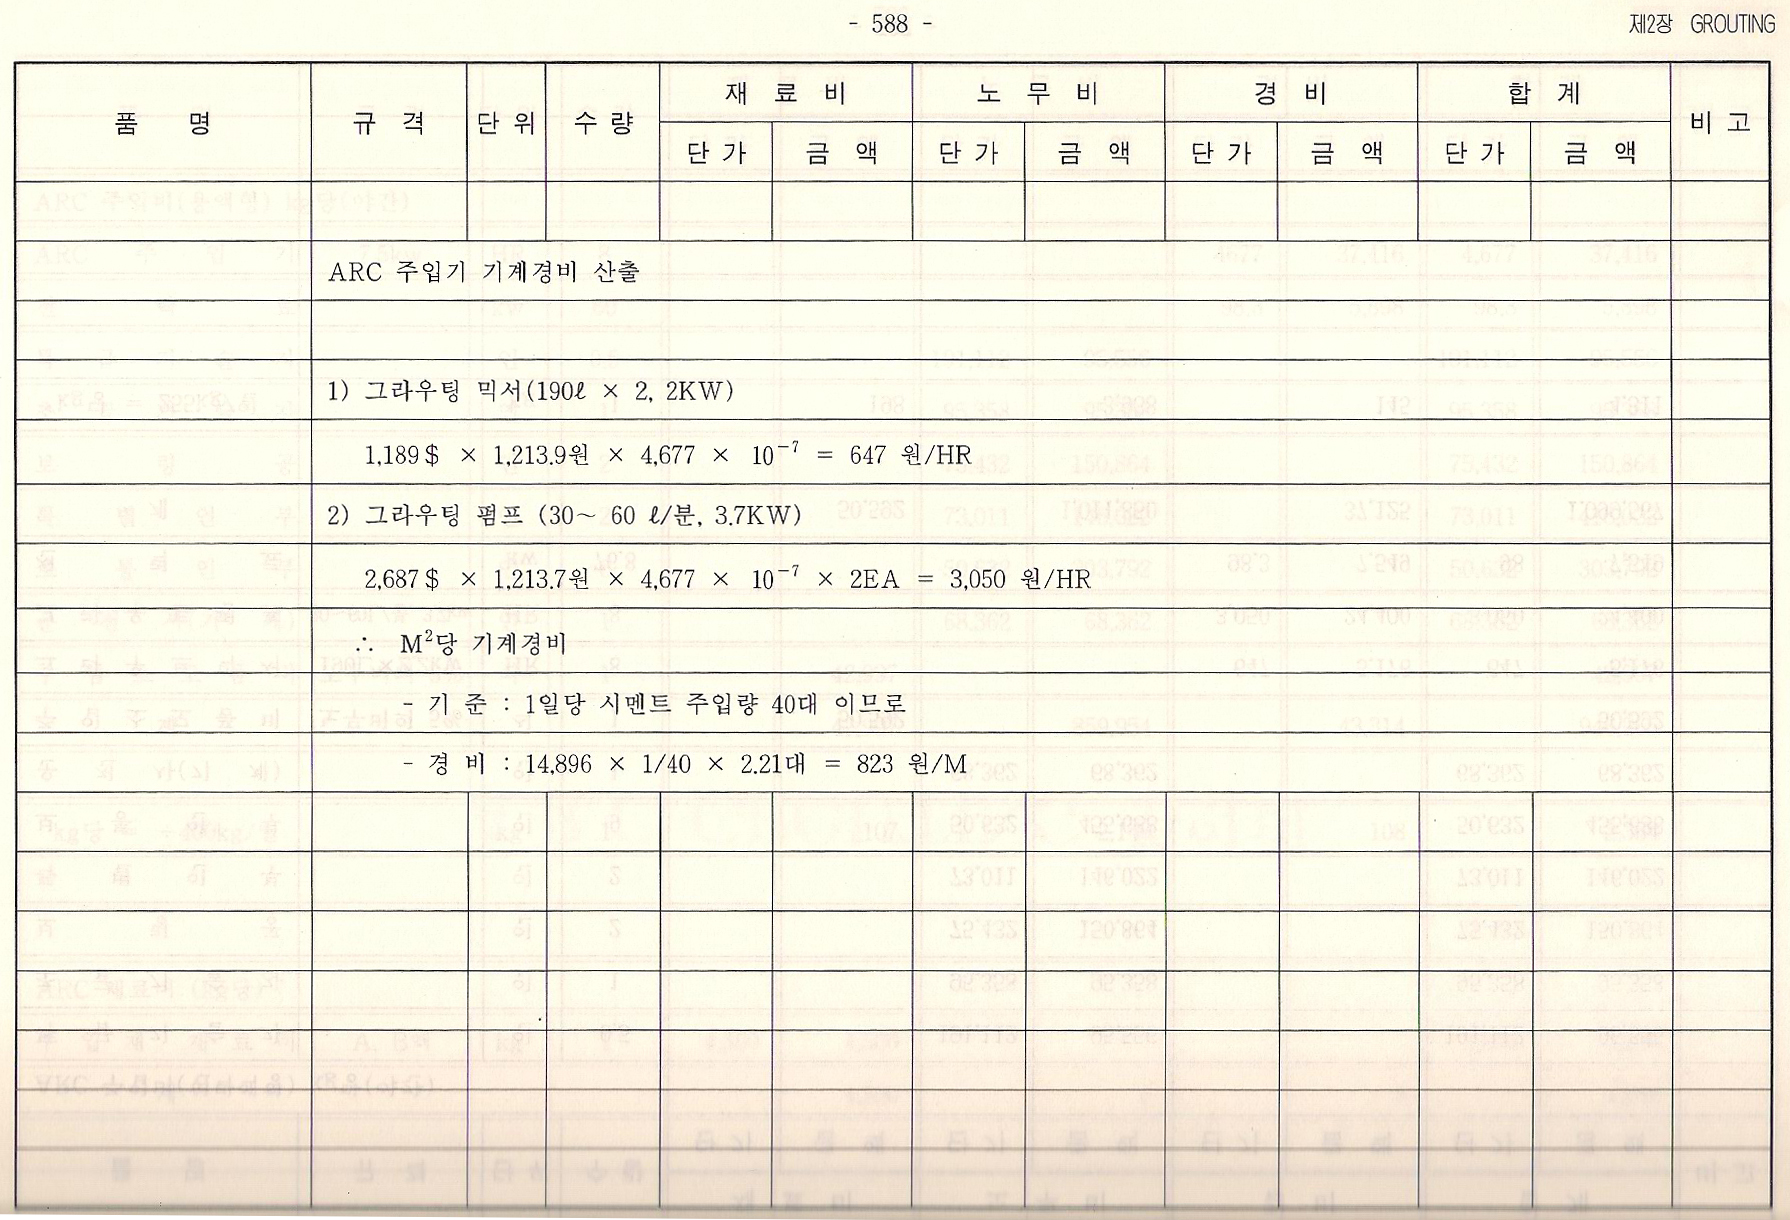 - 588 -
제2장 GROUTING
품 명 규 격 단 위 수 량 재 료 비 노 무 비 경 비 합 계 비 고
단 가 금 액 단 가 금 액 단 가 금 액 단 가 금 액
ARC 주입기 기계경비 산출
1) 그라우팅 믹서(190ℓ × 2, 2KW)
1,189$ × 1,213.9원 × 4,677 × 10⁻⁷ = 647 원/HR
2) 그라우팅 펌프 (30~ 60 ℓ/분, 3.7KW)
2,687$ × 1,213.7원 × 4,677 × 10⁻⁷ × 2EA = 3,050 원/HR
∴ M²당 기계경비
- 기 준 : 1일당 시멘트 주입량 40대 이므로
- 경 비 : 14,896 × 1/40 × 2.21대 = 823 원/M